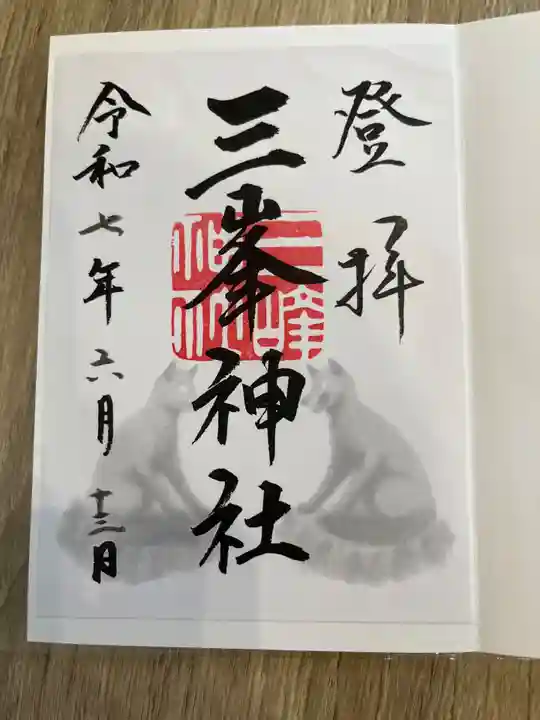 登拝
三峯神社
令和七年六月十三日